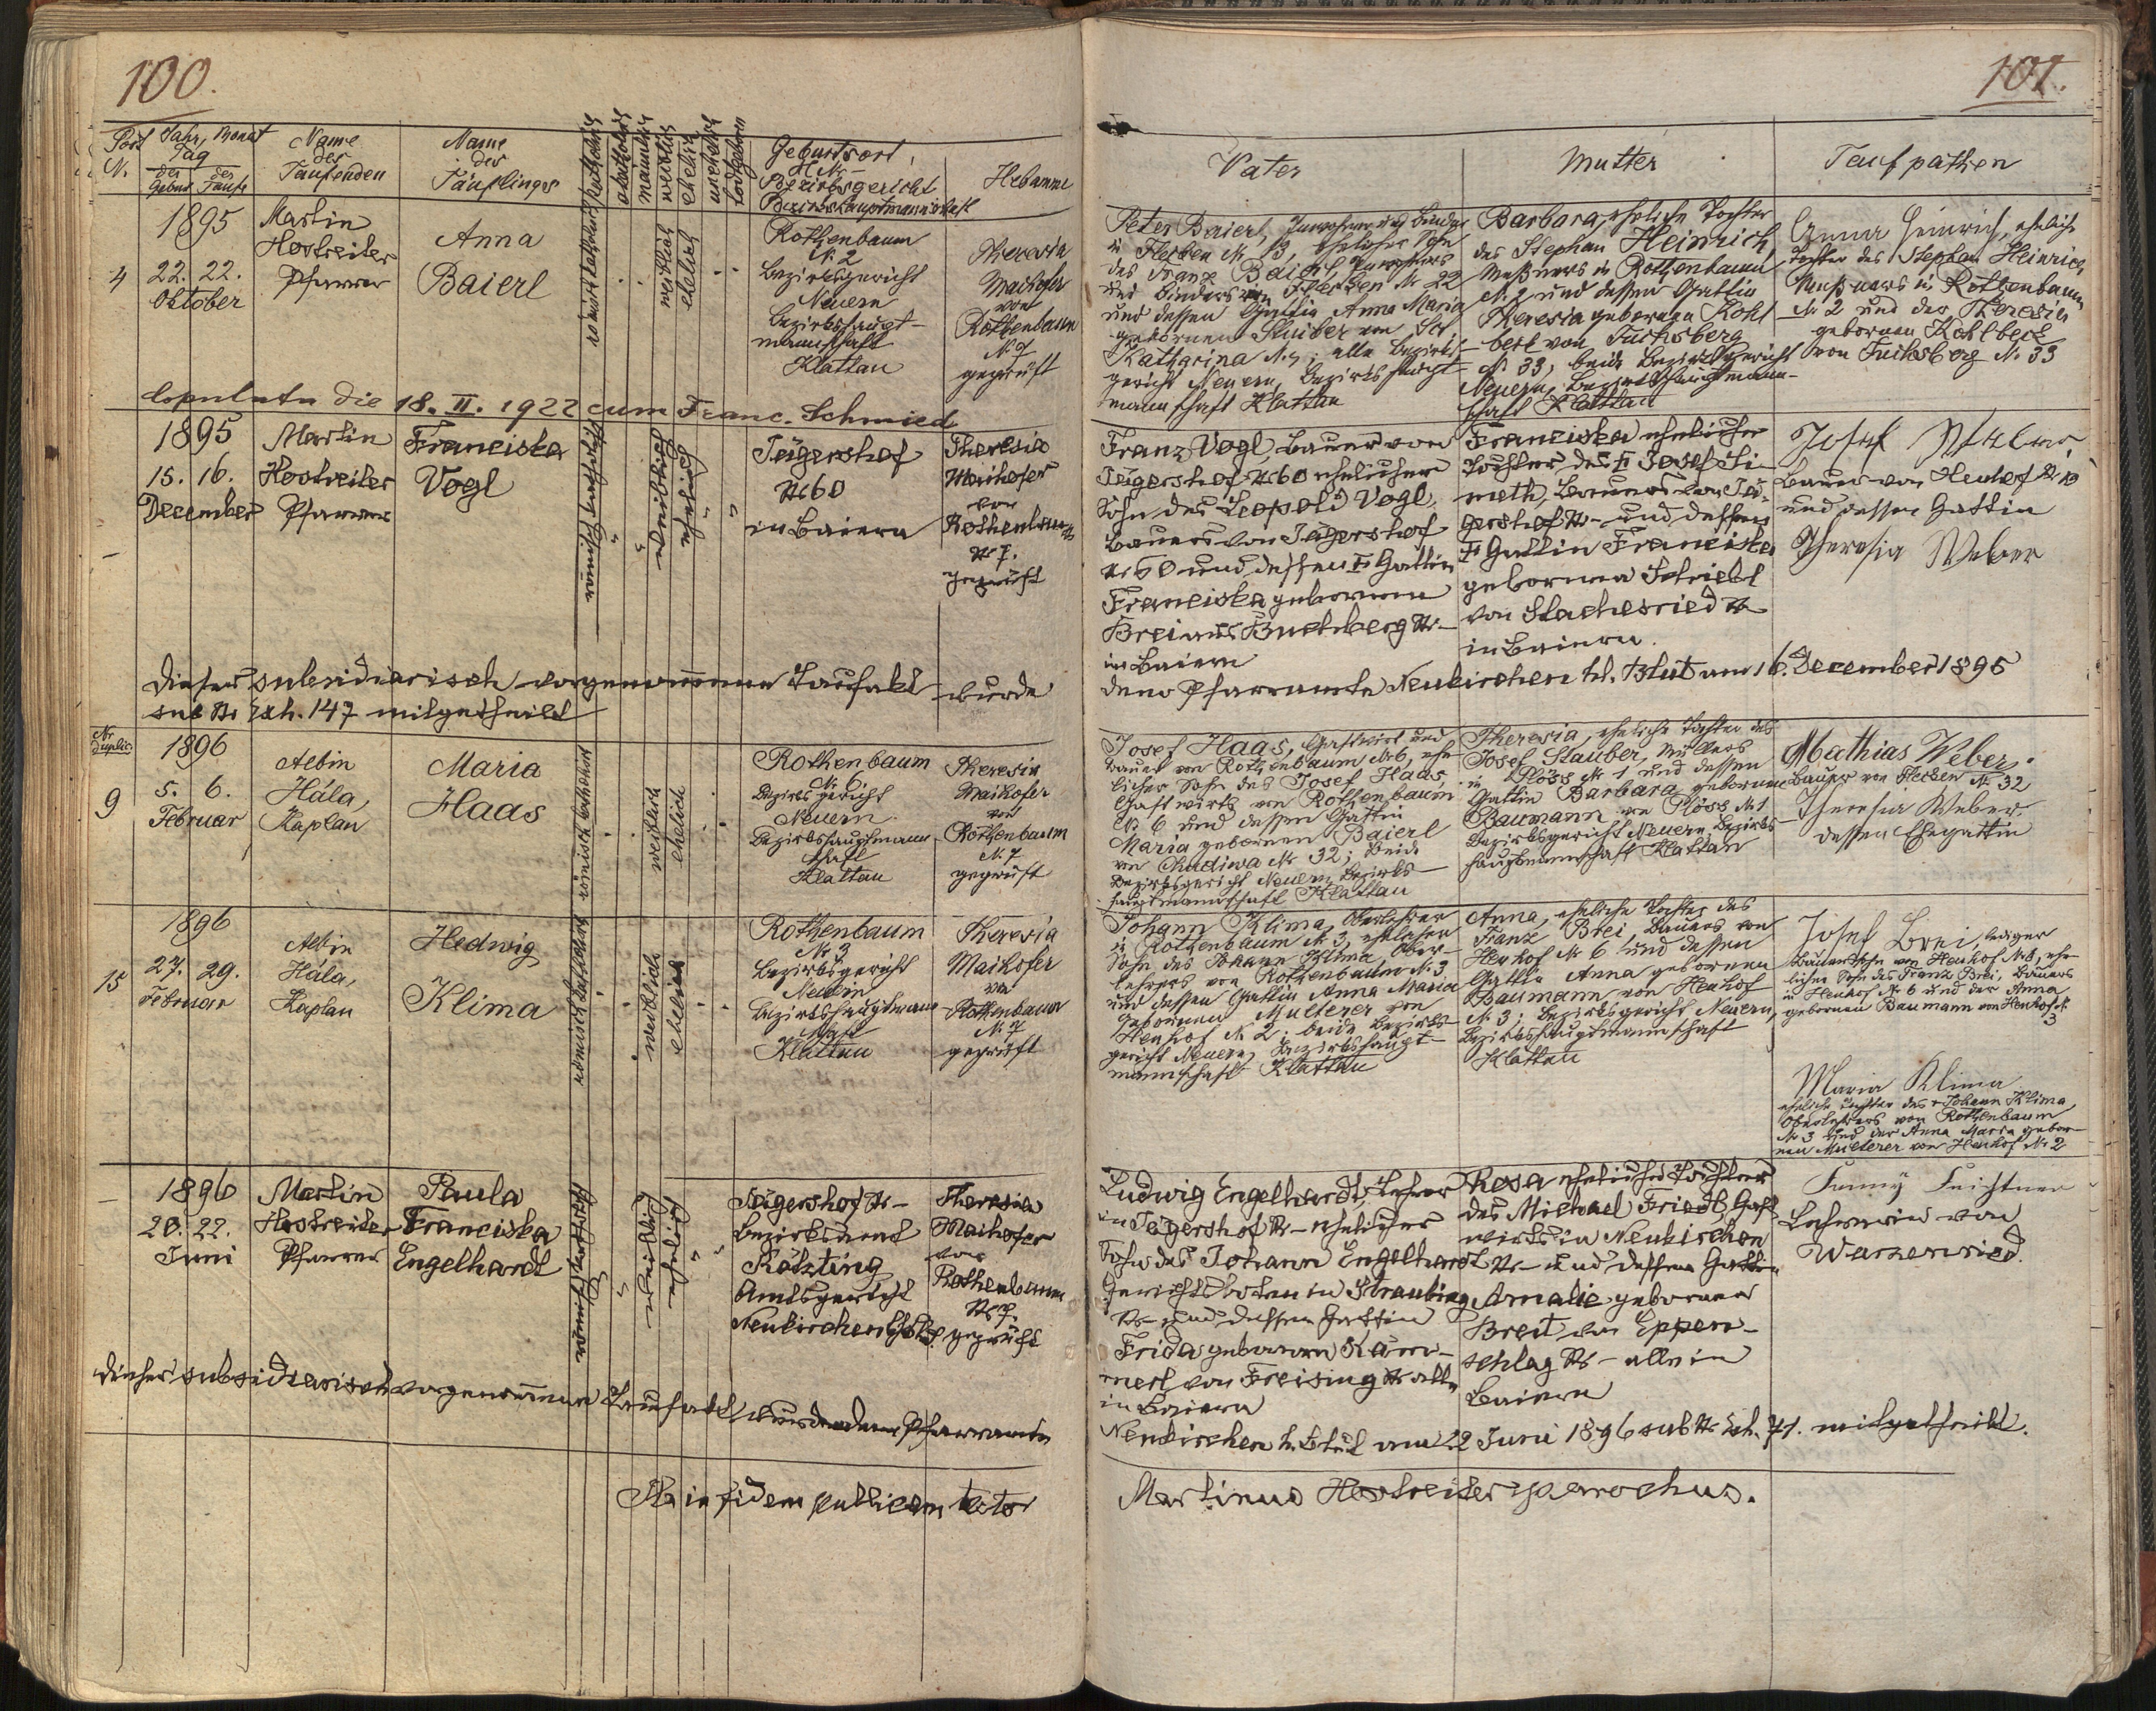 100.
101.
Post Nr.
Jahr, Monat
Tag
der Geburt
der Taufe
Name
der
Taufenden
Name
des
Täuflings
römisch katholisch
akatholisch
männlich
weiblich
ehelich
unehelich
todtgeboren
Geburtsort,
H. Nr.
Bezirksgericht
Bezirkshauptmannschaft
Hebamme
Vater
Mutter
Taufpathen
4
1895
22. 22.
Oktober
Martin
Hostreiter
Pfarrer
Anna
Baierl
römisch katholisch
weiblich
ehelich
Rothenbaum
N. 2
Bezirksgericht
Neuern
Bezirkshaupt-
mannschaft
Klattau
Theresia
Maihofer
von
Rothenbaum
N. 7
geprüft
Peter Baierl, Inwohner und Binder
in Flecken Nr 13, ehelicher Sohn
des Franz Baierl, Inwohners
und Binders in Flecken Nr 22
und dessen Gattin Anna Maria
gebornen Stuiber von St.
Katharina N. ; alle Bezirks-
gericht Neuern, Bezirkshaupt-
mannschaft Klattau
Barbara, eheliche Tochter
des Stephan Heinrich,
Meßners in Rothenbaum
N. 2 und dessen Gattin
Theresia gebornen Kohl
beck von Fuchsberg
N. 33, beide Bezirksgericht
Neuern, Bezirkshauptmann-
schaft Klattau
Anna Heinrich, eheliche
Tochter des Stephan Heinrich,
Meßners in Rothenbaum
Nr 2 und der Theresia
gebornen Kohlbeck
von Fuchsberg N. 33
Copulata die 18. II. 1922 cum Franc. Schmied
1895
15. 16.
December
Martin
Hostreiter
Pfarrer
Franciska
Vogl
römisch katholisch
weiblich
ehelich
Jägershof
Nr 60
in Baiern
Theresia
Maihofer
von
Rothenbaum
Nr 7.
geprüft
Franz Vogl, Bauer von
Jägershof Nr 60 ehelicher
Sohn des Leopold Vogl,
Bauers von Jägershof
Nr 60 und dessen Gattin
Franciska gebornen
Brei aus Buchberg Nr –
in Baiern
Franciska eheliche
Tochter des Josef Si-
meth, Bauers von Jä-
gershof Nr – und dessen
Gattin Franciska
gebornen Schriebl
von Stachesried Nr
in Baiern.
Josef Weber,
Bauer von Heuhof Nr 10
und dessen Gattin
Theresia Weber
Dieser subsidiarisch vorgenommene Taufakt wurde
dem Pfarramte Neukirchen hl. Blut am 16. December 1895
sub Nr Exh. 147 mitgetheilt
Nr.
duplic.
9
1896
5. 6.
Februar
Albin
Hála,
Kaplan
Maria
Haas
römisch katholisch
weiblich
ehelich
Rothenbaum
N. 6
Bezirksgericht
Neuern
Bezirkshauptmann-
schaft
Klattau
Theresia
Maihofer
von
Rothenbaum
N. 7
geprüft
Josef Haas, Gastwirt und
Bauer von Rothenbaum Nr 6, ehe
licher Sohn des Josef Haas
Gastwirts von Rothenbaum
N. 6 und dessen Gattin
Maria gebornen Baierl
von Chudiwa Nr 32; beide
Bezirksgericht Neuern, Bezirks-
hauptmannschaft Klattau
Theresia, eheliche Tochter des
Josef Stauber, Müllers
in Plöss Nr 1 und dessen
Gattin Barbara gebornen
Baumann von Plöss Nr 1
Bezirksgericht Neuern, Bezirks-
hauptmannschaft Klattau
Mathias Weber,
Bauer von Flecken Nr 32
Theresia Weber,
dessen Ehegattin
15
1896
27. 29.
Februar
Albin
Hála,
Kaplan
Hedwig
Klima
römisch katholisch
weiblich
ehelich
Rothenbaum
Nr 3
Bezirksgericht
Neuern
Bezirkshauptmann-
schaft
Klattau
Theresia
Maihofer
von
Rothenbaum
N. 7
geprüft
Johann Klima, Oberlehrer
in Rothenbaum N 3, ehelicher
Sohn des Johann Klima, Ober-
lehrers von Rothenbaum N. 3
und dessen Gattin Anna Maria
gebornen Multerer von
Heuhof Nr 2; beide Bezirks-
gericht Neuern, Bezirkshaupt-
mannschaft Klattau
Anna, eheliche Tochter des
Franz Brei, Bauers von
Heuhof Nr 6 und dessen
Gattin Anna gebornen
Baumann von Heuhof
N. 3; Bezirksgericht Neuern,
Bezirkshauptmannschaft
Klattau
Josef Brei, lediger
Bauerssohn von Heuhof N 6, ehe-
licher Sohn des Franz Brei, Bauers
in Heuhof Nr 6 und der Anna
gebornen Baumann von Heuhof N.
3
Maria Klima
eheliche Tochter des Johann Klima,
Oberlehrers von Rothenbaum
Nr 3 und der Anna Maria gebor-
nen Multerer von Heuhof Nr 2
1896
20. 22.
Juni
Martin
Hostreiter
Pfarrer
Paula
Franciska
Engelhardt
römisch katholisch
weiblich
ehelich
Jägershof Nr –
Bezirksamt
Kötzting
Amtsgericht
Neukirchen
Theresia
Maihofer
von
Rothenbaum
Nr 7.
geprüft
Ludwig Engelhardt, Lehrer
in Jägershof Nr – ehelicher
Sohn des Johann Engelhardt
Gerichtsboten in Straubing
Nr – und dessen Gattin
Frida gebornen Kam-
merl von Freising Nr alle
in Baiern
Rosa eheliche Tochter
des Michael Friedl, Gast
wirts in Neukirchen
Nr – und dessen Gattin
Amalie gebornen
Breit von Eppen-
schlag Nr – alle in
Baiern
Fanny Feichtner
Lehrerin von
Warzenried.
Dieser subsidiarisch vorgenommene Taufakt wurde dem Pfarramte
Neukirchen h. Blut am 22 Juni 1896 sub Nr Exh. 71. mitgetheilt.
in fidem publicam testor
Martinus Hostreiter parochus.